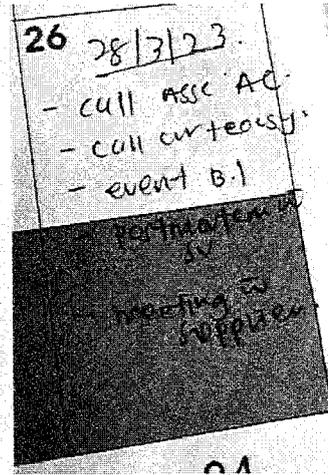 26 28/3/23.
- call Assc AC.
- call curteousy.
- event B.1
- postmortem w
SV
- meeting w
supplier